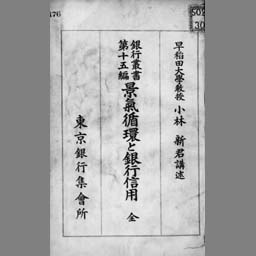 476
507
30
早稲田大學教授 小林 新君講述
銀行叢書
第十五編
景氣循環と銀行信用 全
東京銀行集會所